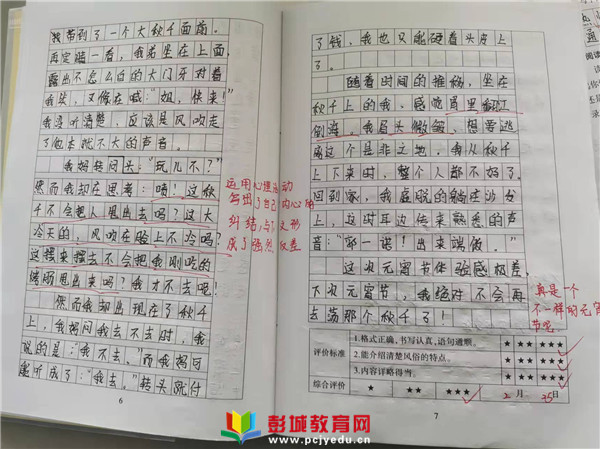 我带到了一个大秋千面前。
再定睛一看,我弟坐在上面,
露出不怎么白的大门牙对着
我笑,又像在喊:“姐,快来!”
我没听清楚,应该是风吹走
了他本就不大的声音。
我妈转问头:“玩儿不?”
然而我却在思考:唔!这秋
千不会把人甩出去吗?这大
冷天的,风吹在脸上不冷吗?
这摆来摆去不会把我刚吃的
晚饭甩出来吗?我才不去呢!
然而我却出现在了秋千
上,我妈问我去不去时,我
说的是:“我不去。”而我妈可
能听成了:“我去。”转头就付
运用心理活动
写出了自己内心的
纠结,与下文形
成了强烈反差
6
了钱,我也只能硬着头皮上
了。
随着时间的推移,坐在
秋千上的我,感觉胃里翻江
倒海。我眉头微皱,想要逃
离这个是非之地,我从秋千
上下来时,整个人都不好了。
回到家,我虚脱的躺在沙发
上,这时耳边传来熟悉的声
音:“那一诺!出来端饭。”
这次元宵节体验感极差,
下次元宵节,我绝对不会再
去荡那个秋千了!
真是一个
不一样的元宵
节呢
评价标准
1.格式正确,书写认真,语句通顺。
★★★ ★★★★ ★★★★★
2.能介绍清楚风俗的特点。
3.内容详略得当。
综合评价
★ ★★ ★★★
2月25日
7
彭城教育网
www.pcjyedu.cn